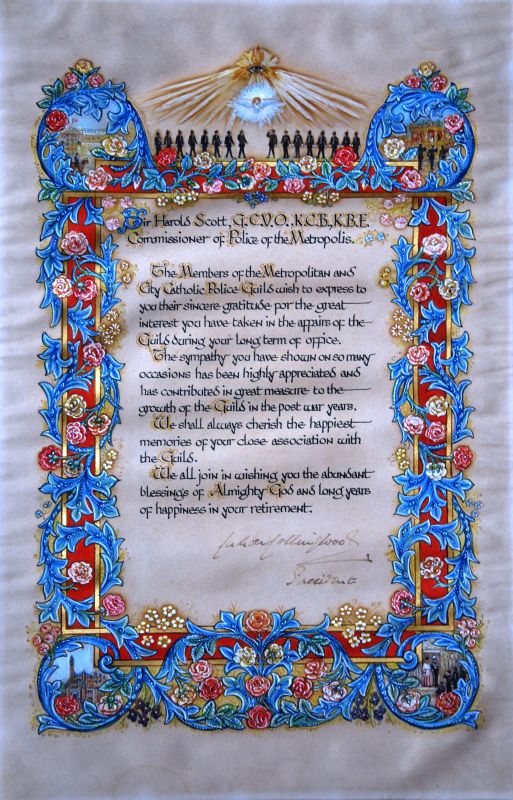 Sir Harold Scott, G.C.V.O., K.C.B., K.B.E.
Commissioner of Police of the Metropolis.
The Members of the Metropolitan and
City Catholic Police Guild wish to express to
you their sincere gratitude for the great
interest you have taken in the affairs of the
Guild during your long term of office.
The sympathy you have shown on so many
occasions has been highly appreciated and
has contributed in great measure to the
growth of the Guild in the post war years.
We shall always cherish the happiest
memories of your close association with
the Guild.
We all join in wishing you the abundant
blessings of Almighty God and long years
of happiness in your retirement.
President